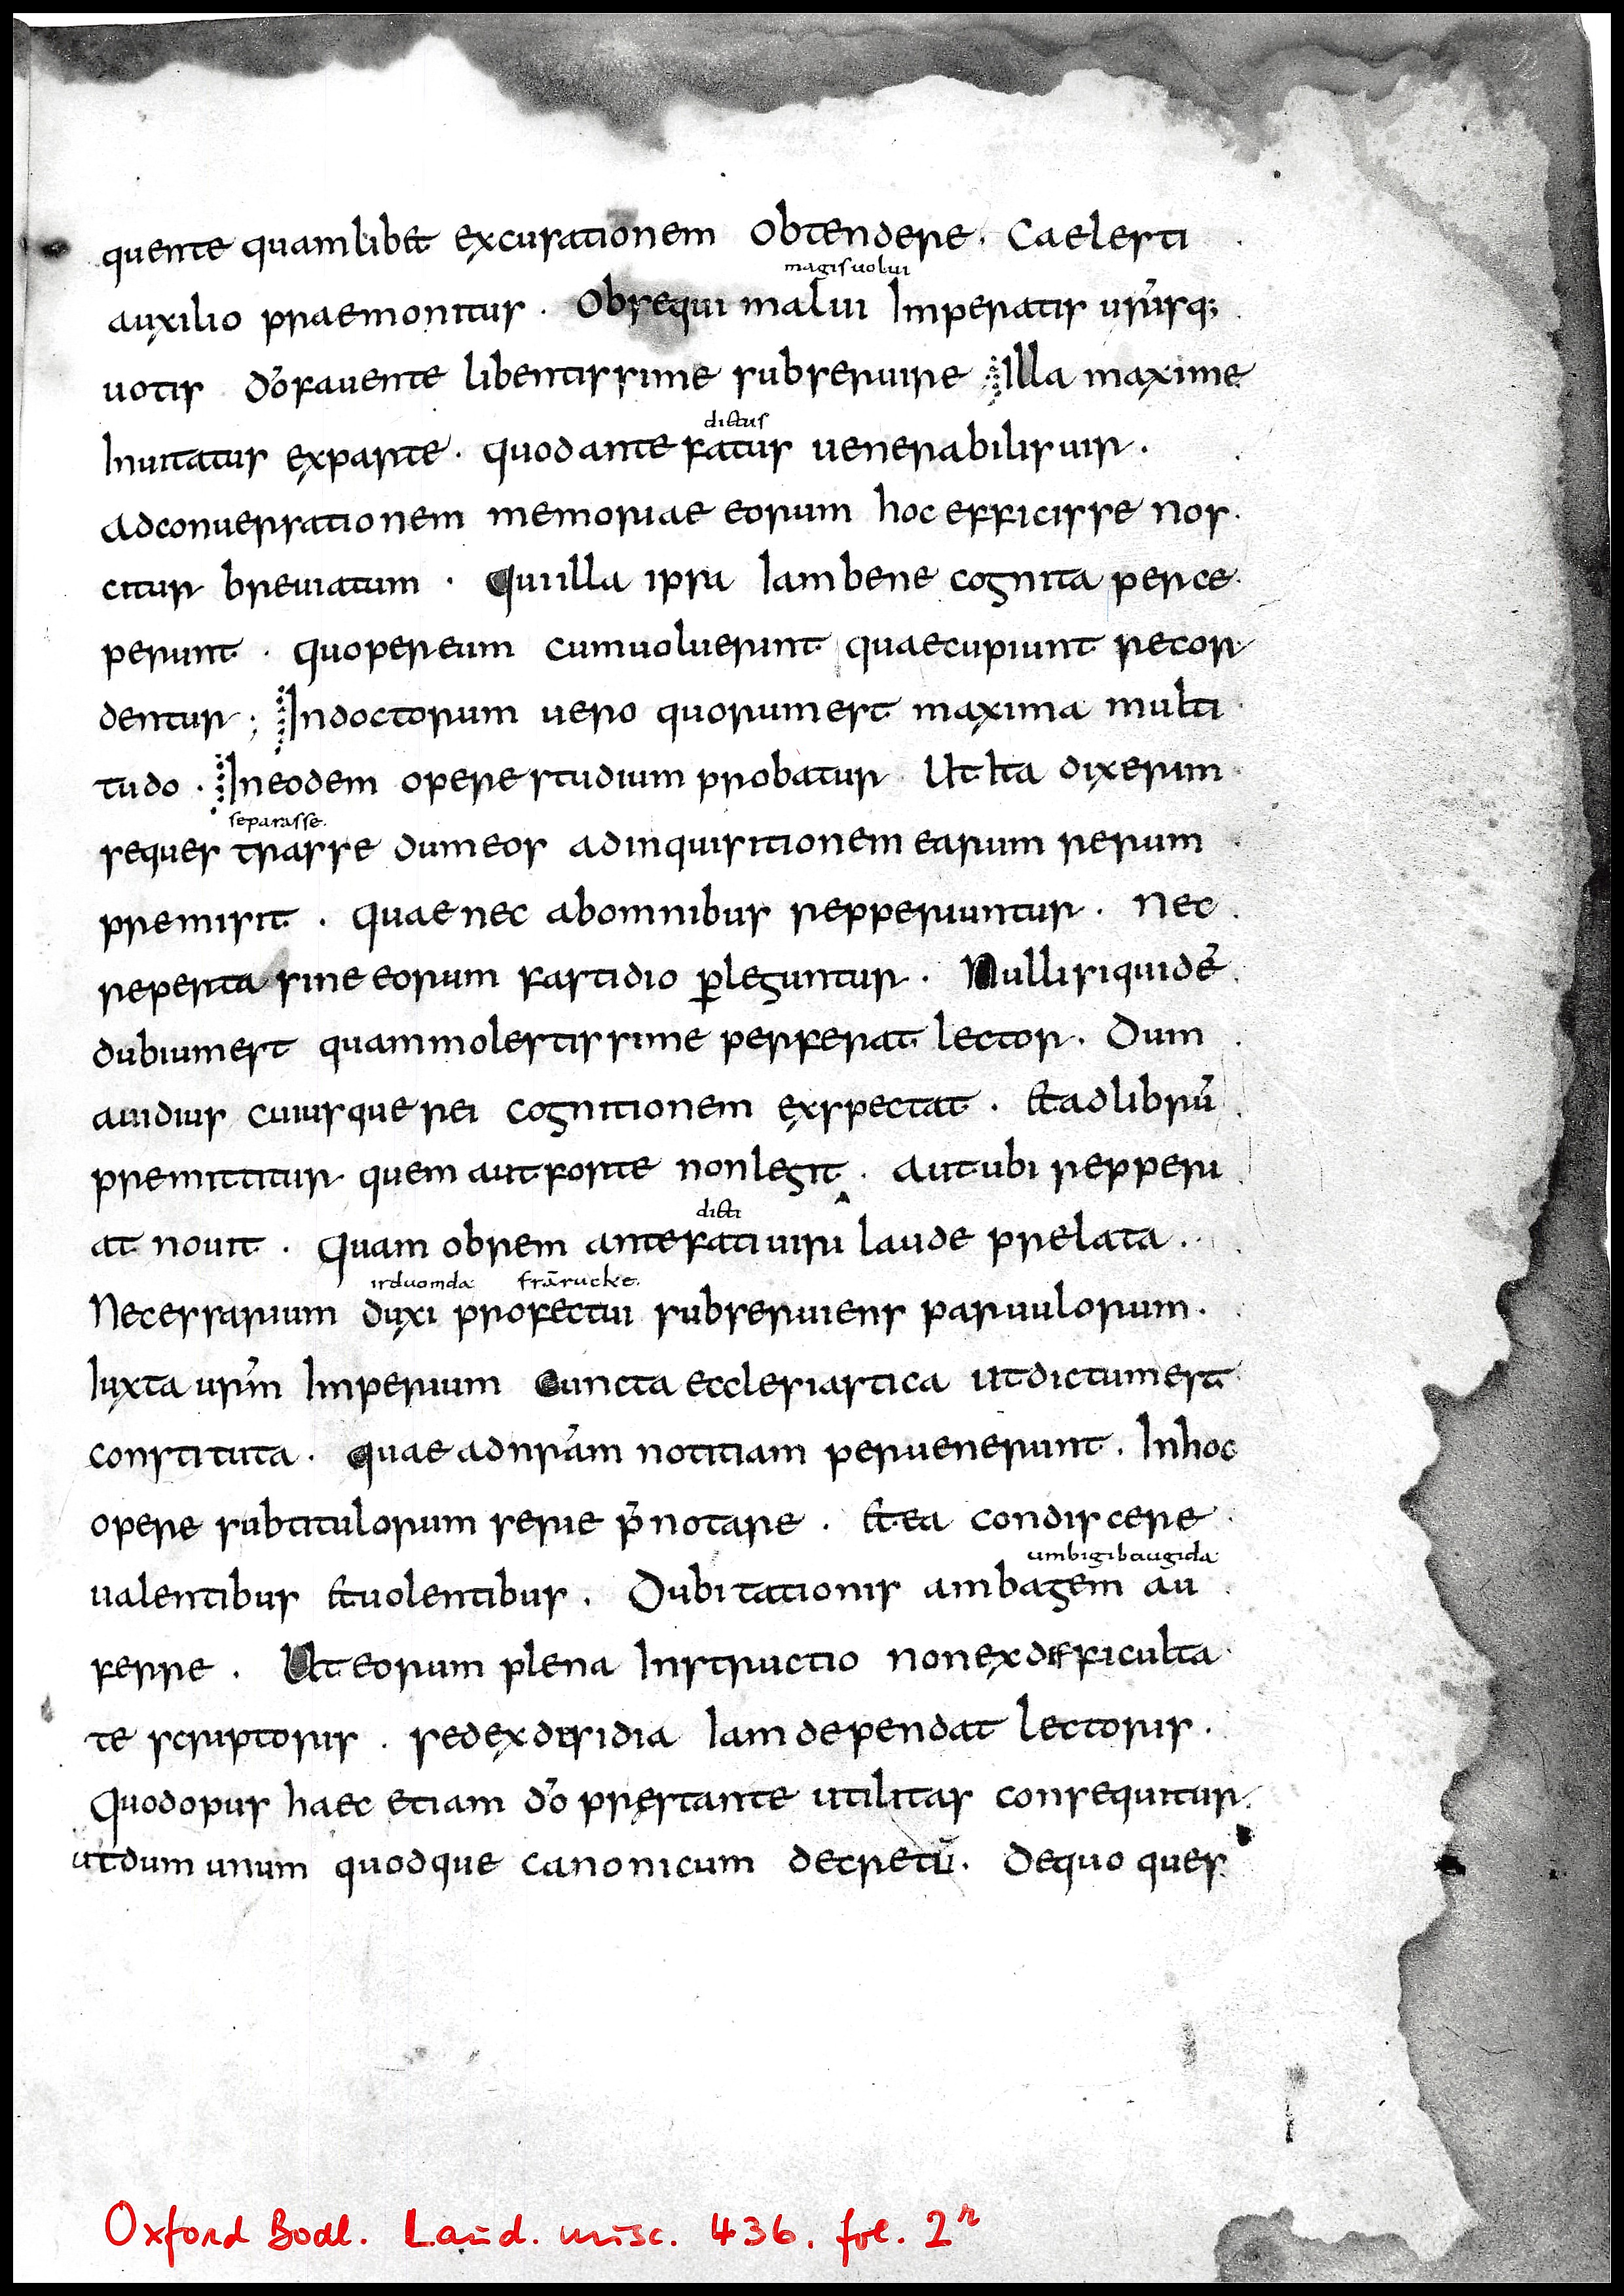 quente quamlibet excusationem Obtendere. Caelesti
magis uolui
auxilio praemonitus. Obsequi malui Imperatis urisq;
uotis dō fauente libentissime subseruire Illa maxime
dictus
Inuitatus exparte. quodante fatus uenerabilis uir.
adconuersationem memoriae eorum hoc efficisse nos
citur breuiatum. Quiilla ipsa Iambene cognita perce
perunt. quopereum cumuoluerint quaecupiunt recor
dentur; Indoctorum uero quorumest maxima multi
tudo. Ineodem opere studium probatur Ut Ita dixerim
separasse.
sequestrasse dumeos adinquisitionem earum rerum
premisit. quae nec abomnibus repperiuntur. nec
reperita sine eorum fastidio p̱leguntur. Nulli siquidē
dubiumest quammolestissime perferat lector. Dum
auidius cuiusque rei cognitionem exspectat. Et adlibrū
premittitur quem aut forte nonlegit. aut ubi repperi
dicti
at nouit. Quam obrem antefati uiri laude prelata.
irduomda frārucke.
Necessarium duxi profectui subseruiens paruulorum.
Iuxta urm̄ Imperium cuncta ecclesiastica ut dictumest
constituta. quae adnrām notitiam peruenerunt. Inhoc
opere subtitulorum serie p̄notare. Et ea condiscere
umbigibaugida
ualentibus et uolentibus. Dubitationis ambagem au
ferre. Ut eorum plena Instructio nonexdifficulta
te scriptoris. sedexdesidia Iam dependat lectoris.
Quodopus haec etiam dō prestante utilitas consequitur.
utdum unum quodque canonicum decretū. dequo ques
Oxford Bodl. Laud. misc. 436. fol. 2r